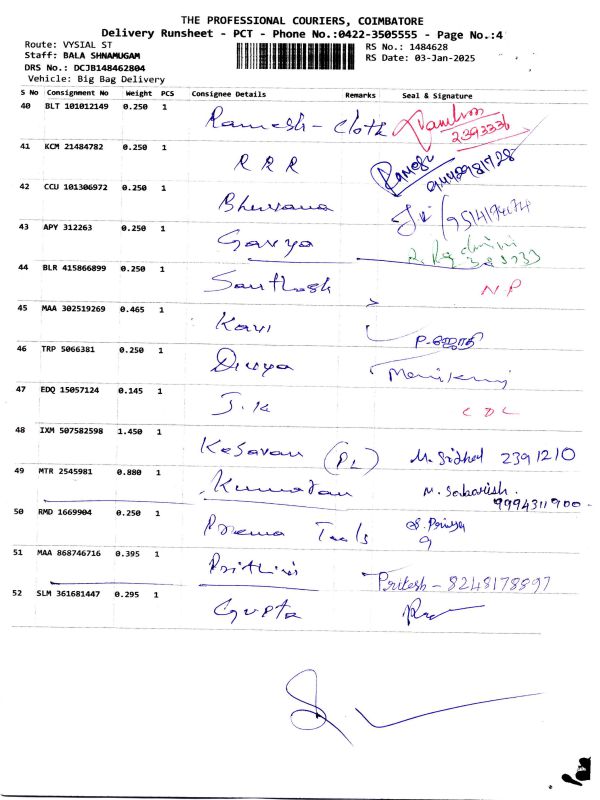 THE PROFESSIONAL COURIERS, COIMBATORE
Delivery Runsheet - PCT - Phone No.:0422-3505555 - Page No.:4
Route: VYSIAL ST
RS No.: 1484628
Staff: BALA SHNAMUGAM
RS Date: 03-Jan-2025
DRS No.: DCJB148462804
Vehicle: Big Bag Delivery
S No Consignment No Weight PCS Consignee Details Remarks Seal & Signature
40 BLT 101012149 0.250 1 Ramesh - Cloth
41 KCM 21484782 0.250 1 R R R Ramesh
42 CCU 101306972 0.250 1 Bhuvana
43 APY 312263 0.250 1
44 BLR 415866899 0.250 1 Santhosh N P
45 MAA 302519269 0.465 1 Kavi
46 TRP 5066381 0.250 1 Divya
47 EDQ 15057124 0.145 1 J. K C D C
48 IXM 507582598 1.450 1 Kesavan (PL) 2391210
49 MTR 2545981 0.880 1 Kumaran M. Sabarish. 9994311900
50 RMD 1669904 0.250 1 Prema Tools S. Priya
51 MAA 868746716 0.395 1 Pritesh - 8248178897
52 SLM 361681447 0.295 1 Gupta